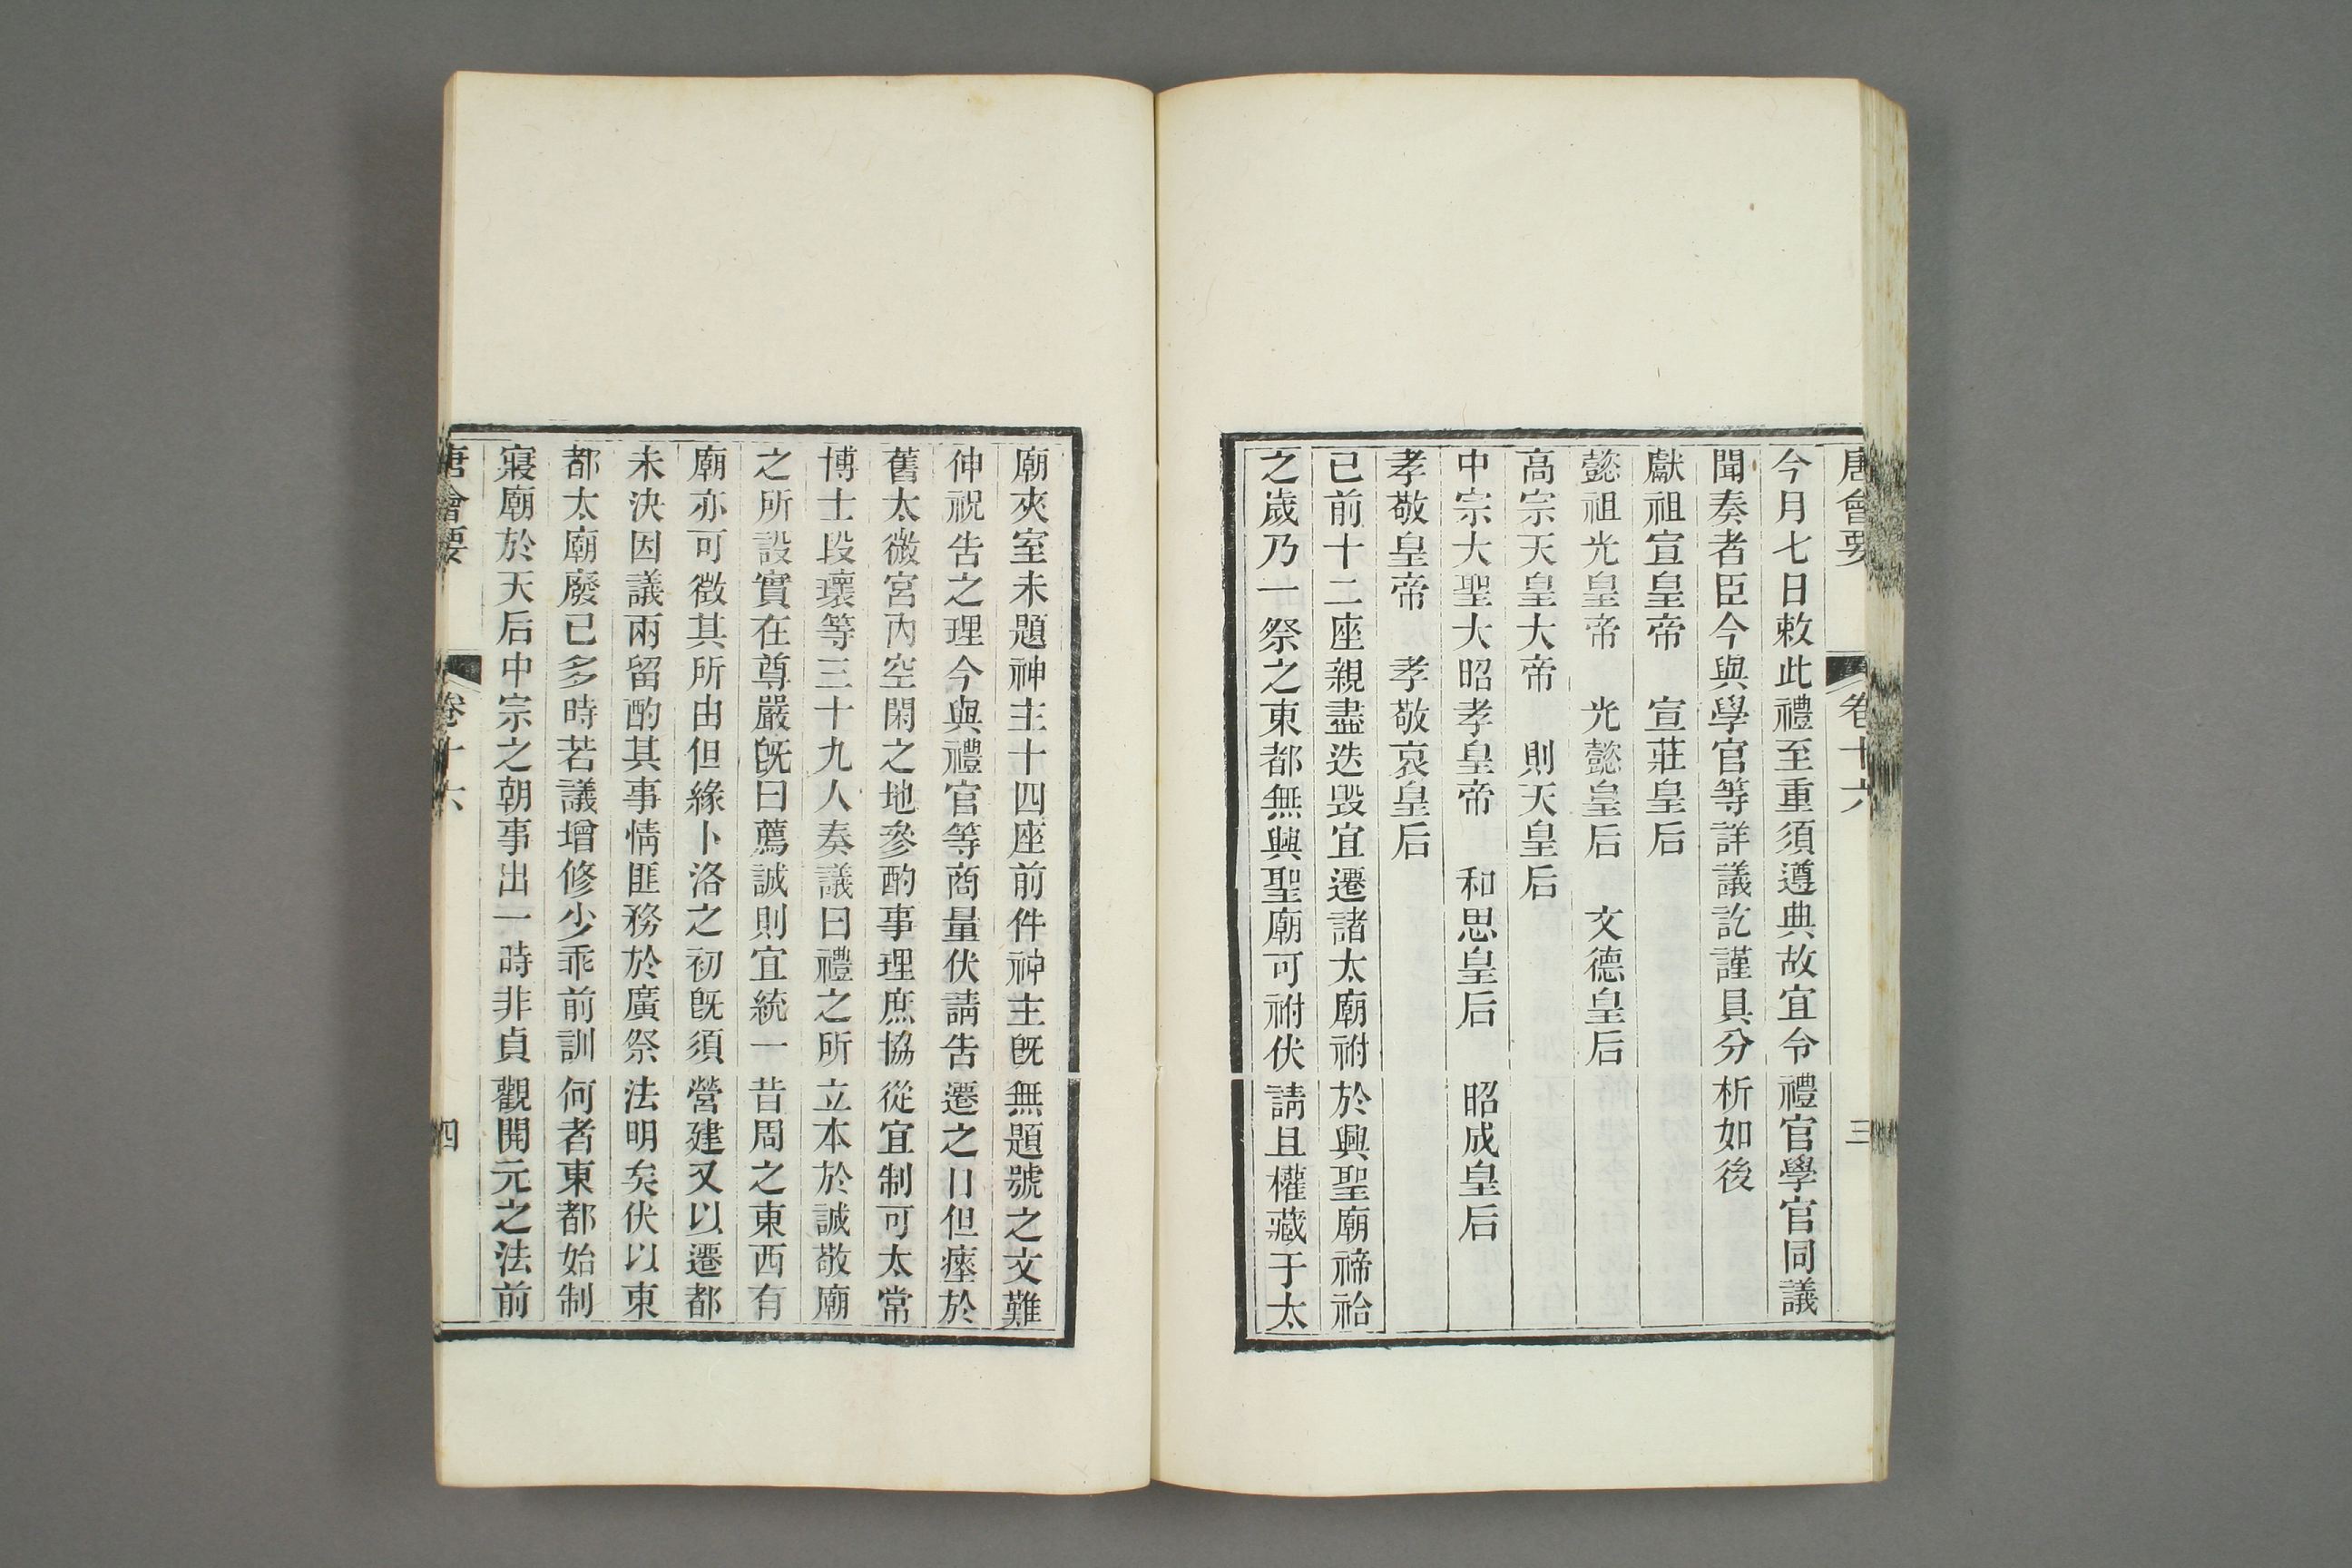 唐會要 卷十六 三
今月七日敕此禮至重須遵典故宜令禮官學官同議
聞奏者臣今與學官等詳議訖謹具分析如後
獻祖宣皇帝 宣莊皇后
懿祖光皇帝 光懿皇后 文德皇后
高宗天皇大帝 則天皇后
中宗大聖大昭孝皇帝 和思皇后 昭成皇后
孝敬皇帝 孝敬哀皇后
已前十二座親盡迭毀宜遷諸太廟祔於興聖廟禘祫
之歲乃一祭之東都無興聖廟可祔伏請且權藏于太
廟夾室未題神主十四座前件神主旣無題號之文難
伸祝告之理今與禮官等商量伏請告遷之日但瘞於
舊太微宮內空閑之地參酌事理庶協從宜制可太常
博士段瓌等三十九人奏議曰禮之所立本於誠敬廟
之所設實在尊嚴旣曰薦誠則宜統一昔周之東西有
廟亦可徵其所由但緣卜洛之初旣須營建又以遷都
未決因議兩留酌其事情匪務於廣祭法明矣伏以東
都太廟廢已多時若議增修少乖前訓何者東都始制
寢廟於天后中宗之朝事出一時非貞觀開元之法前
唐會要 卷十六 四